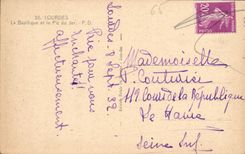 38. LOURDES
La Basilique et le Pic du Jer. - P.D.
Lourdes 8 Sept. 32
Prie pour vous
Enchantée!
Affectueusement
20
Mademoiselle
Couturier
119 Cours de la République
Le Havre
Seine Inf.